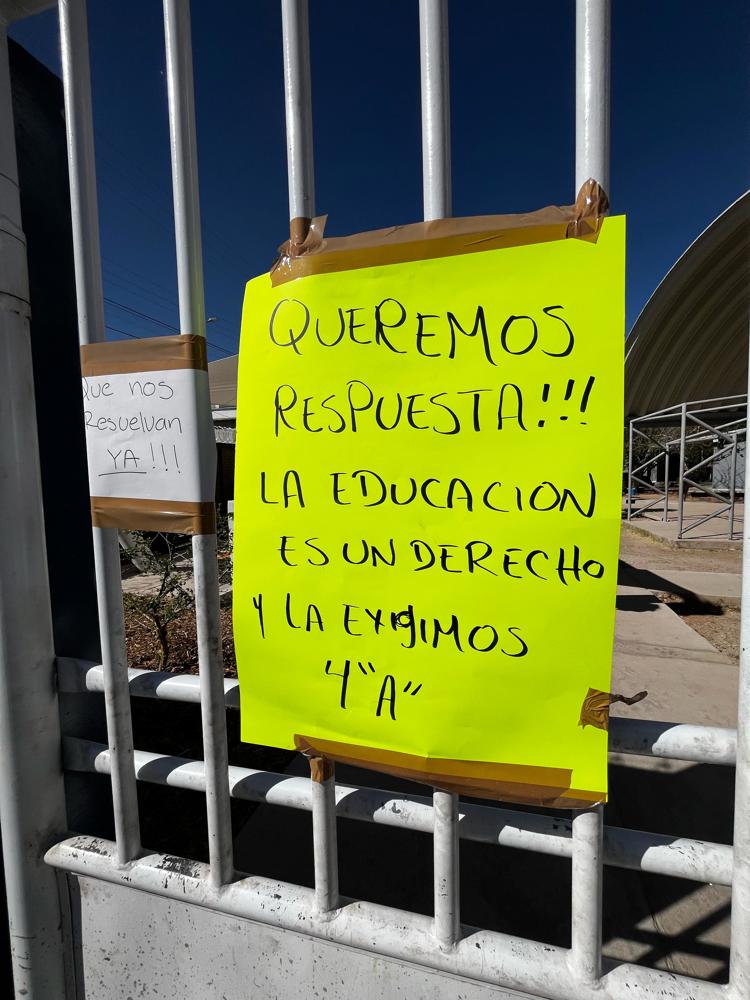 Que nos
Resuelvan
YA!!!
QUEREMOS
RESPUESTA!!!
LA EDUCACION
ES UN DERECHO
Y LA EXIGIMOS
4"A"